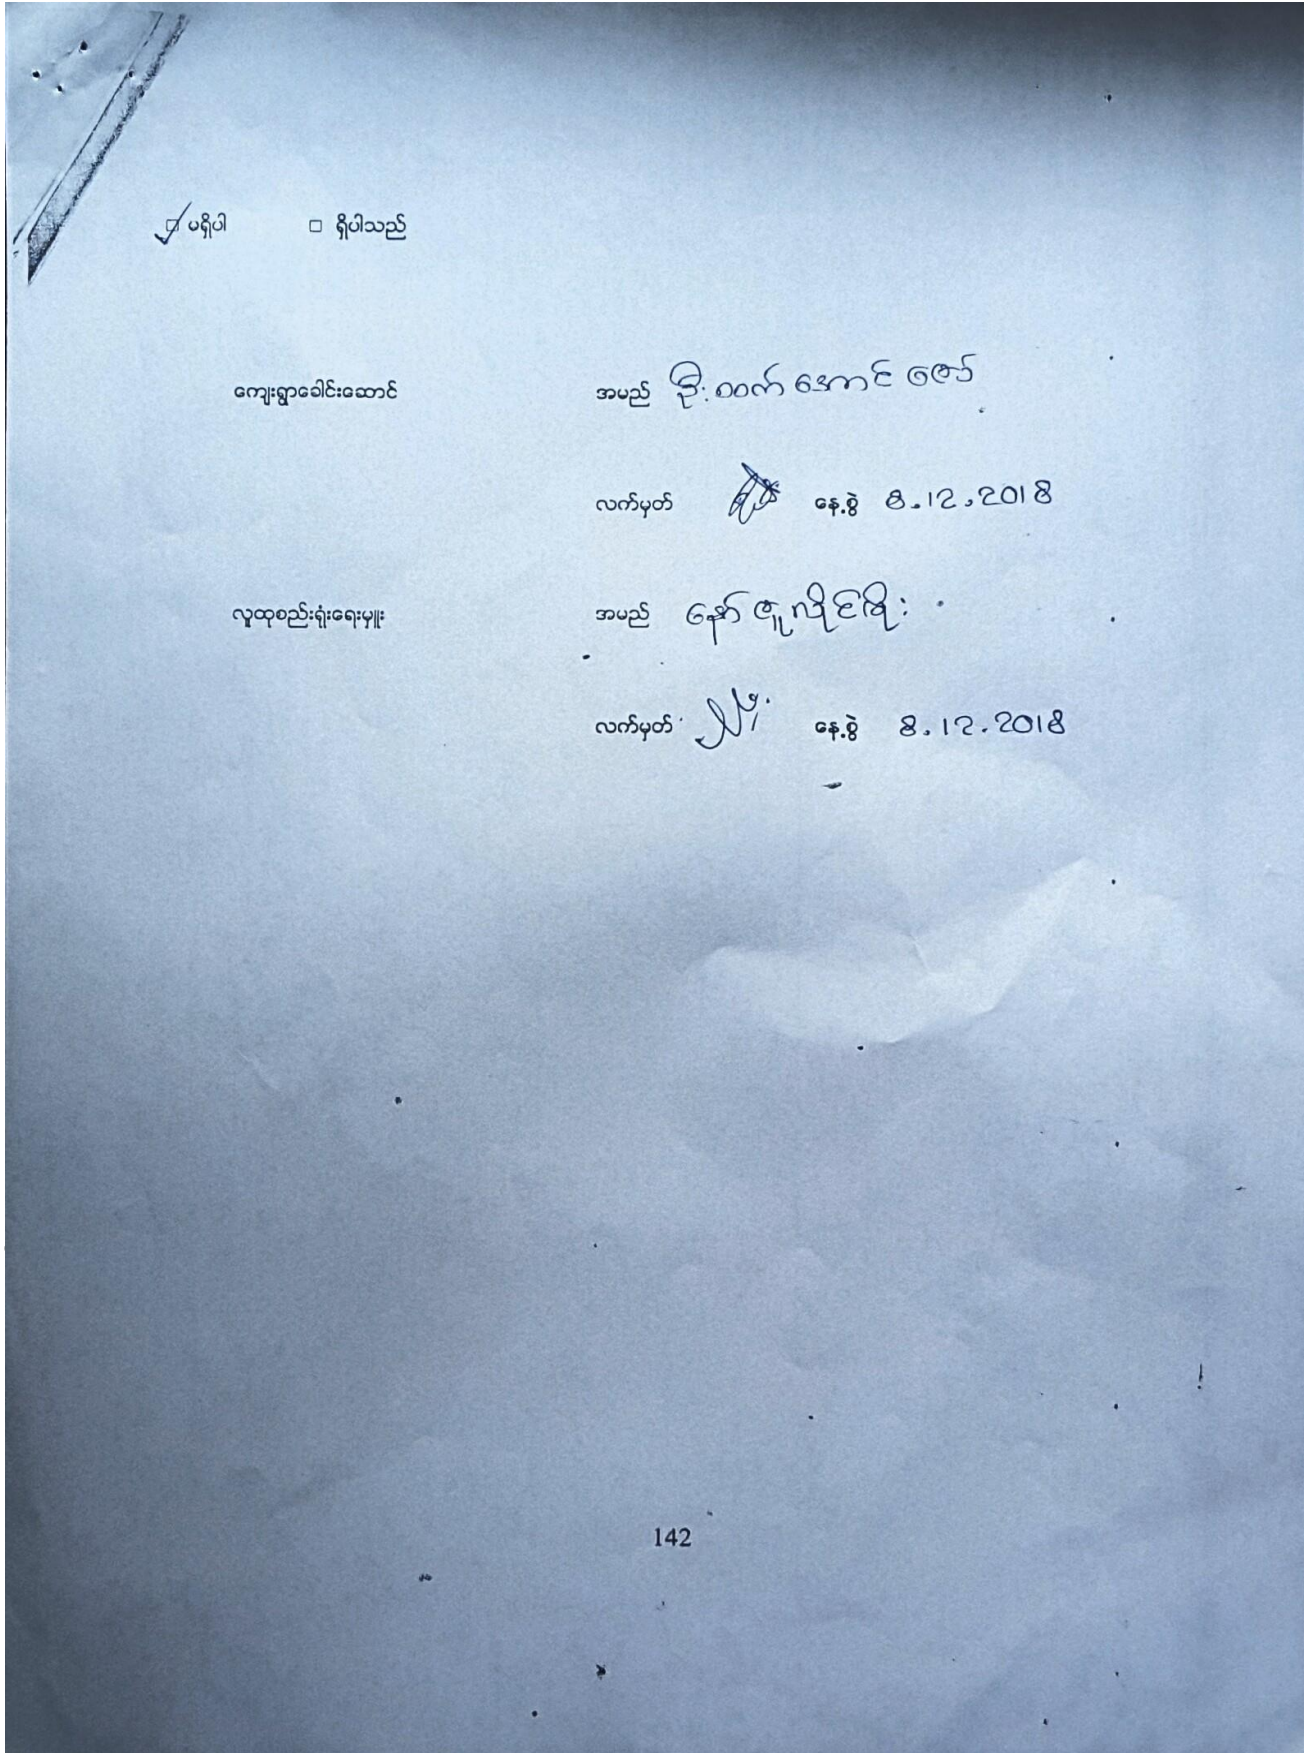 ☑ မရှိပါ □ ရှိပါသည်
ကျေးရွာခေါင်းဆောင် အမည် ဦးထက်အောင်ဇော်
လက်မှတ် နေ့စွဲ 8.12.2018
လူထုစည်းရုံးရေးမှူး အမည် နော်ဇူလိုင်စိုး
လက်မှတ် နေ့စွဲ 8.12.2018
142